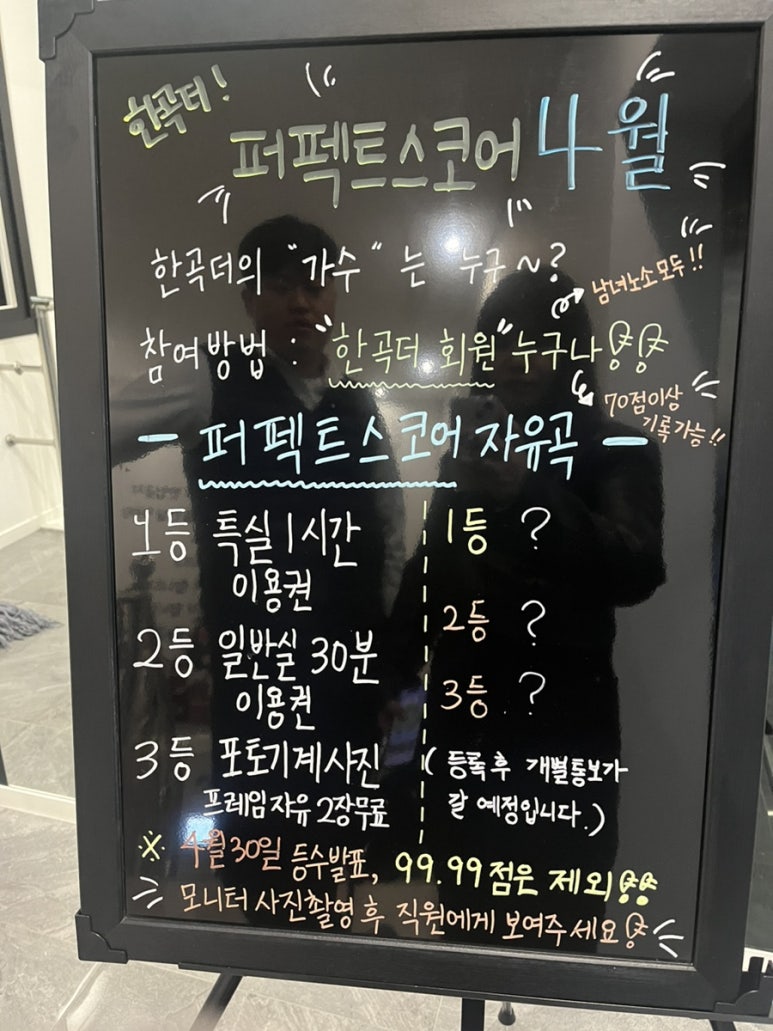 한곡더!
퍼펙트스코어 4월
한곡더의 "가수"는 누구~?
남녀노소모두!!
참여방법 : "한곡더 회원" 누구나!!
70점이상
기록가능!!
- 퍼펙트스코어 자유곡 -
1등 특실 1시간
이용권
2등 일반실 30분
이용권
3등 포토기계사진
프레임자유 2장무료
1등 ?
2등 ?
3등 ?
(등록 후 개별통보가
갈 예정입니다.)
※ 4월30일 등수발표, 99.99점은 제외!!
모니터 사진촬영 후 직원에게 보여주세요!